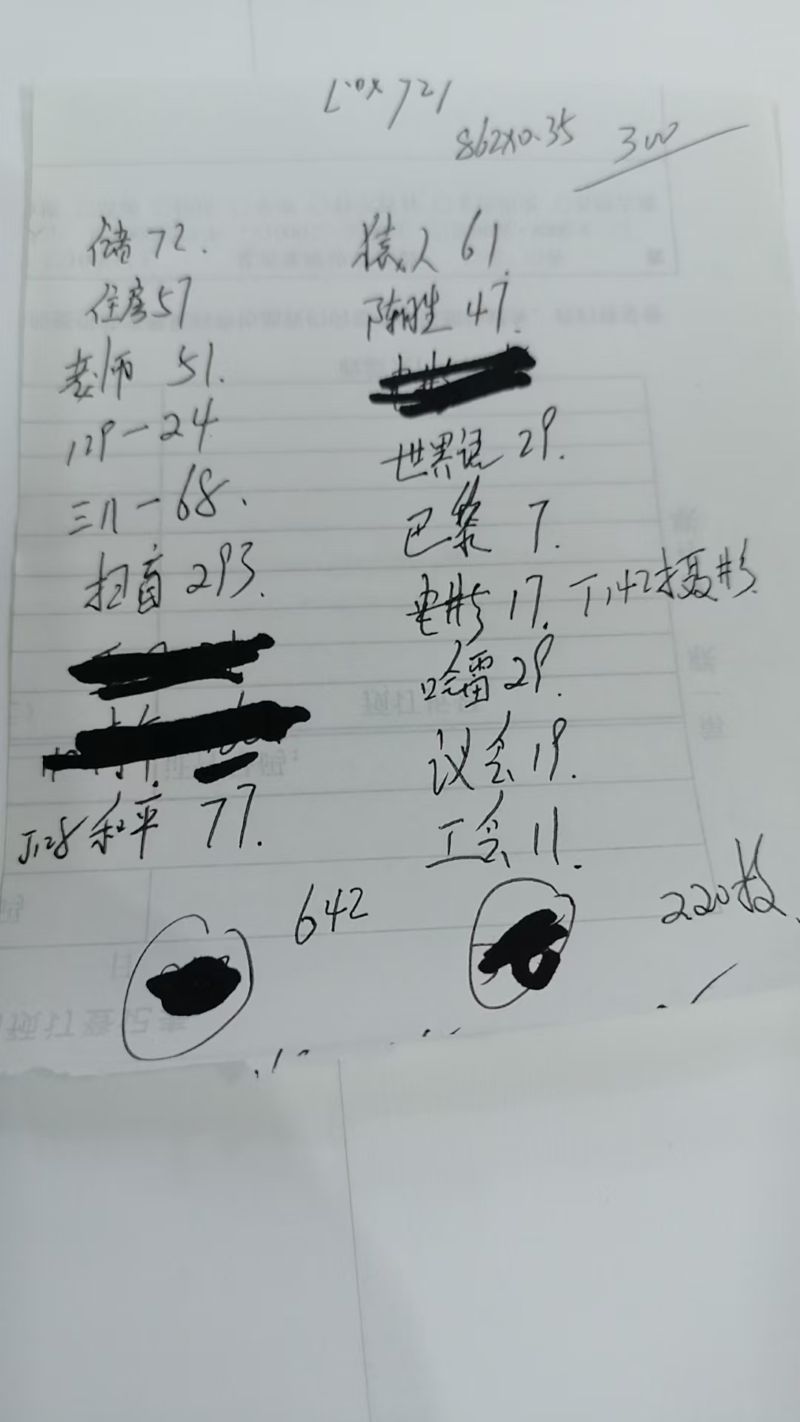 862x0.35 300
储 72.
住房 57
老师 51.
129-24
三八-68.
扫盲 293.
J128 和平 77.
642
猿人 61.
陈胜 47.
世界语 29.
巴黎 7.
电影 17. J142摄影
哈雷 29.
议会 19.
工会 11.
220枚